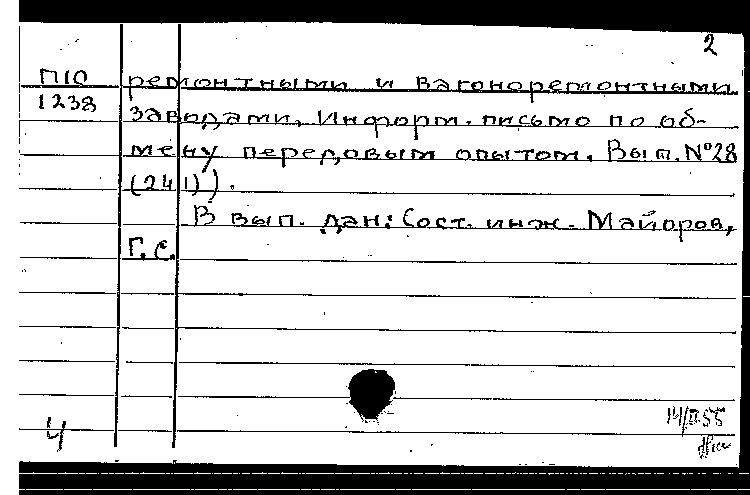 2
П10 ремонтными и вагоноремонтными
1238 заводами. Информ. письмо по об-
мену передовым опытом. Вып. №28
(241)).
В вып. дан: Сост. инж. Майоров,
Г. С.
14/II 55
4